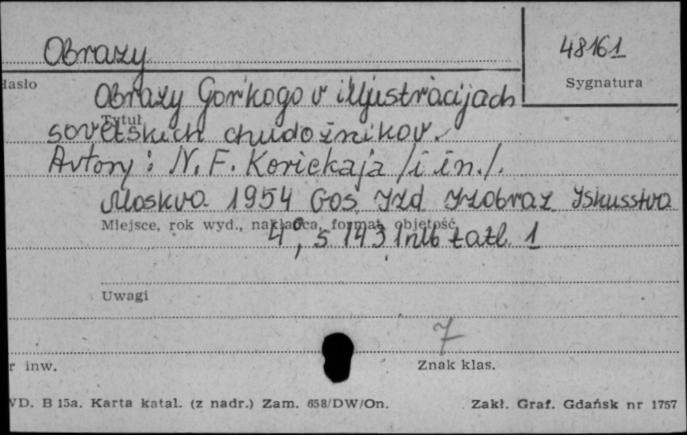 Obrazy
48161
Hasło
Sygnatura
Obrazy Gor'kogo v illjustracijach
Tytuł
sovetskich chudožnikov.
Avtory: N. F. Korickaja /i in./.
Moskva 1954 Gos. Izd Izobraz Iskusstva
Miejsce, rok wyd., nakładca, format, objętość
4°, s 143 1nlb tabl. 1
Uwagi
7
r inw.
Znak klas.
WD. B 15a. Karta katal. (z nadr.) Zam. 658/DW/On.
Zakł. Graf. Gdańsk nr 1757